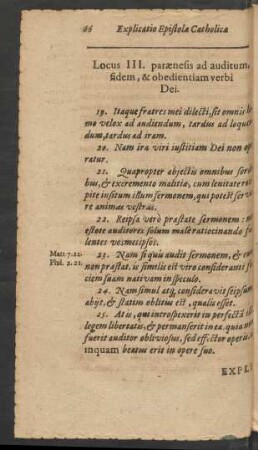 66 Explicatio Epistolæ Catholicæ
Locus III. parænesis ad auditum,
fidem, & obedientiam verbi
Dei.
19. Itaque fratres mei dilecti, sit omnis
mo velox ad audiendum, tardus ad loquen
dum, tardus ad iram.
20. Nam ira viri iustitiam Dei non ope
ratur.
21. Quapropter abjectis omnibus sordi
bus, & excremento malitiæ, cum lenitate re
pite insitum istum sermonem, qui potest
re animas vestras.
22. Reipsa verò præstate sermonem:
estote auditores solum malè ratiocinando
lentes vosmetipsos.
Matt. 7.21.
Phil. 2.21.
23. Nam si quis audit sermonem, &
non præstat, is similis est viro consideranti
ciem suam nativam in speculo.
24. Nam simul atq; consideravit seipsum
abijt, & statim oblitus est, qualis esset.
25. At is, qui introspexerit in perfectã
legem libertatis, & permanserit in ea, quia
fuerit auditor obliviosus, sed effector operis
inquam beatus erit in opere suo.
EXPL